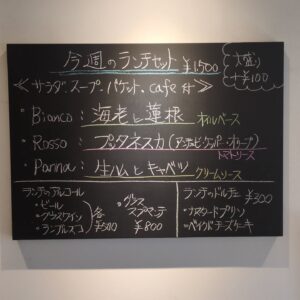 今週のランチセット ¥1,500
大盛り
+¥100
≪サラダ、スープ、バケット、cafe付≫
・Bianco：海老と蓮根 オイルベース
・Rosso：プッタネスカ(アンチョビ・ケッパー・オリーブ)
トマトソース
・Panna：生ハムとキャベツ クリームソース
ランチのアルコール
・ビール
・グラスワイン
・ランブルスコ
各
¥500
・グラス
スプマンテ
¥800
ランチのドルチェ ¥300
・カスタードプリン
・ベイクドチーズケーキ